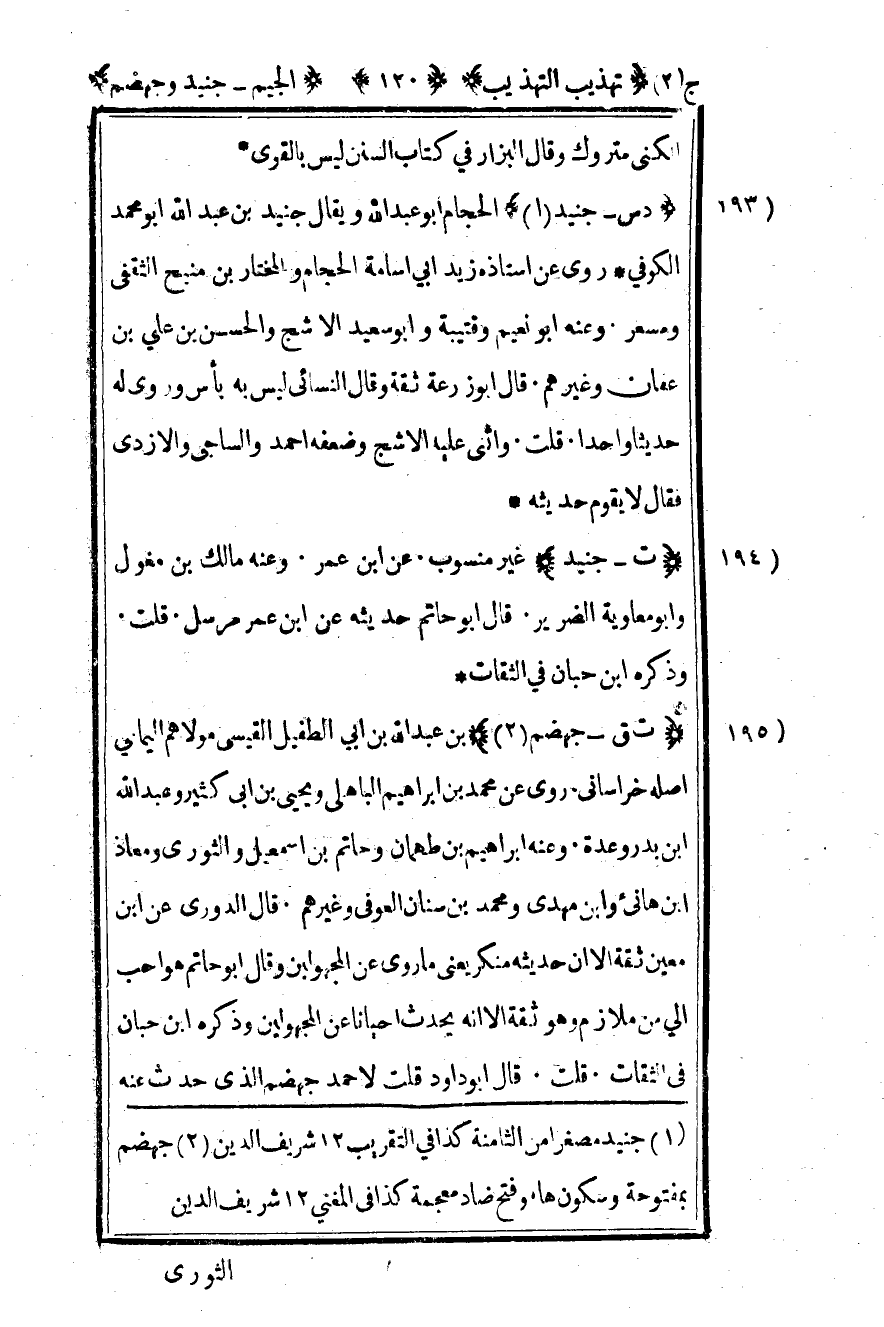 ج(٢) ﴿ تهذيب التهذيب ﴾ ﴿ ١٢٠ ﴾ ﴿ الجيم ـ جنيد وجهضم ﴾
الكنى متروك وقال البزار في كتاب السنن ليس بالقوى *
١٩٣) ﴿ دس ـ جنيد (١) ﴾ الحجام ابو عبدالله ويقال جنيد بن عبد الله ابو محمد
الكوفي * روى عن استاذه زيد ابي اسامة الحجام والمختار بن منيح الثقفى
ومسعر ٠ وعنه ابو نعيم وقتيبة وابو سعيد الاشج والحسن بن علي بن
عفان وغيرهم ٠ قال ابو زرعة ثقة وقال النسائى ليس به بأس وروى له
حديثا واحدا ٠ قلت ٠ واثنى عليه الاشج وضعفه احمد والساجى والازدى
فقال لا يقوم حديثه *
١٩٤) ﴿ ت ـ جنيد ﴾ غير منسوب ٠ عن ابن عمر ٠ وعنه مالك بن مغول
وابو معاوية الضرير ٠ قال ابو حاتم حديثه عن ابن عمر مرسل ٠ قلت ٠
وذكره ابن حبان في الثقات *
١٩٥) ﴿ ت ق ـ جهضم (٢) ﴾ بن عبدالله بن ابي الطفيل القيسى مولاهم اليمانى
اصله خراسانى ٠ روى عن محمد بن ابراهيم الباهلى ويحيى بن ابى كثير وعبدالله
ابن بدر وعدة ٠ وعنه ابراهيم بن طهمان وحاتم بن اسمعيل والثورى ومعاذ
ابن هانئ وابن مهدى ومحمد بن سنان العوفى وغيرهم ٠ قال الدورى عن ابن
معين ثقة الا ان حديثه منكر يعنى ما روى عن المجهولين وقال ابو حاتم هو احب
الي من ملازم وهو ثقة الا انه يحدث احيانا عن المجهولين وذكره ابن حبان
فى الثقات ٠ قلت ٠ قال ابو داود قلت لاحمد جهضم الذى حدث عنه
(١) جنيد مصغرا من الثامنة كذا في التقريب ١٢ شريف الدين (٢) جهضم
بمفتوحة وسكون هاء وفتح ضاد معجمة كذا فى المغني ١٢ شريف الدين
الثورى